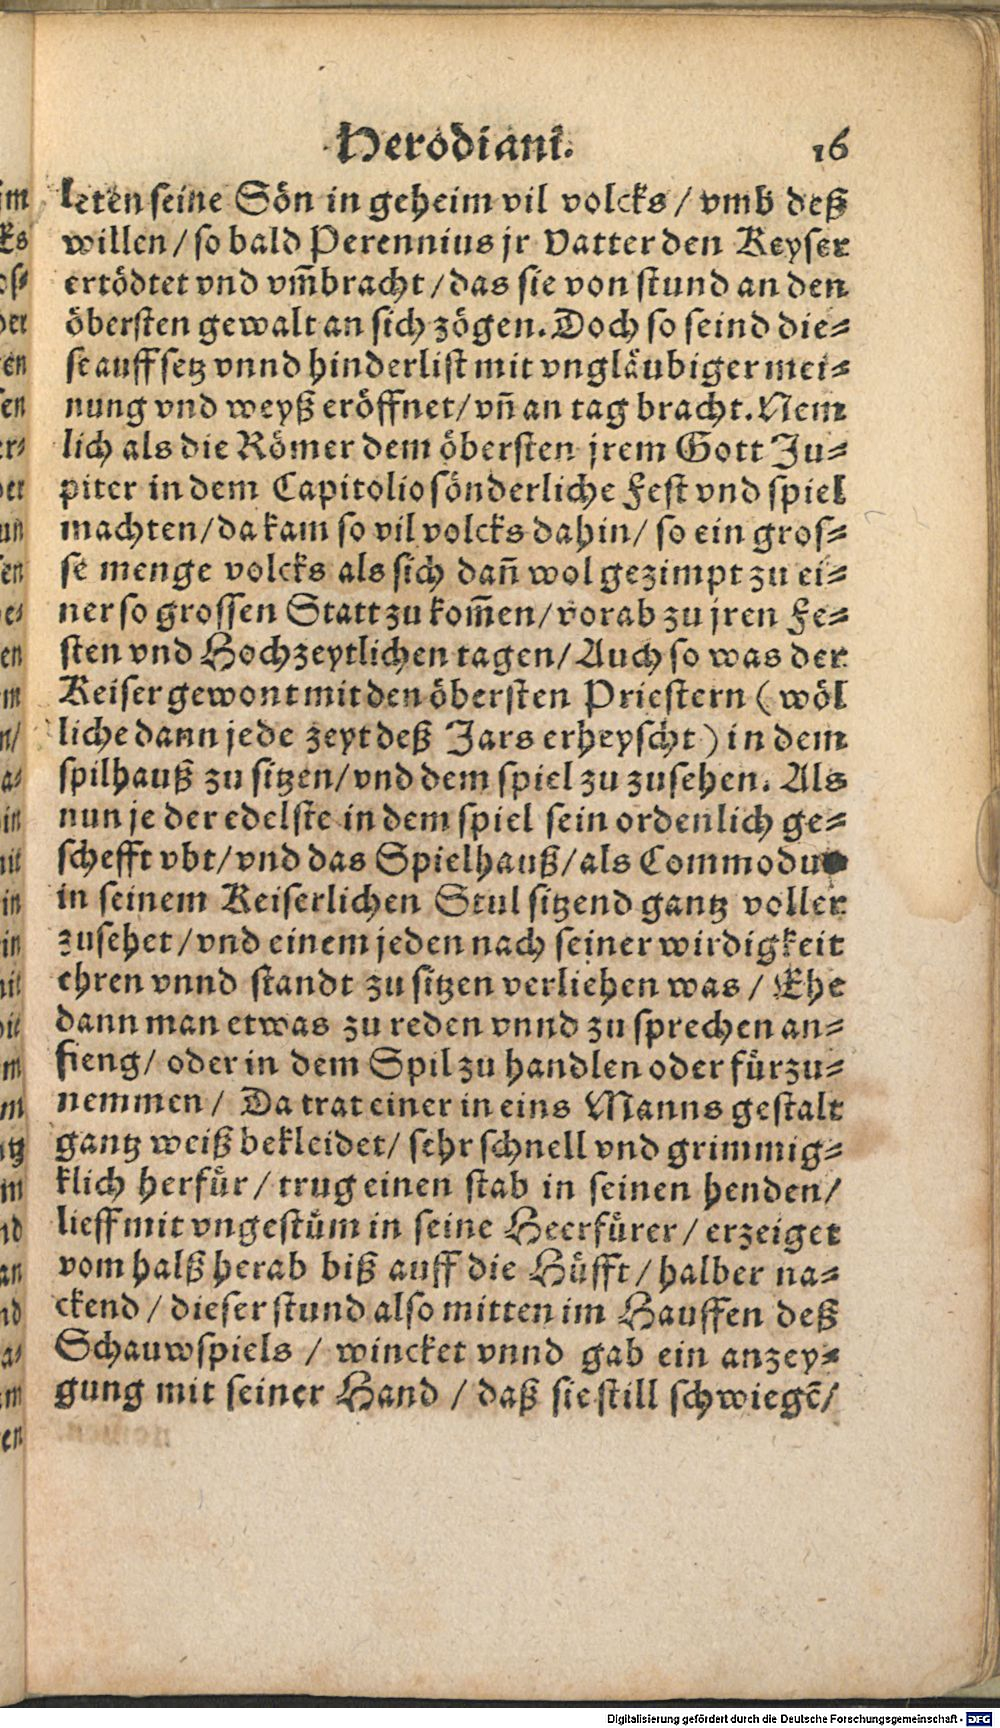 Herodiani. 16
leten seine Sön in geheim vil volcks / vmb deß
willen / so bald Perennius jr Vatter den Keyser
ertödtet vnd vm̄bracht / das sie von stund an den
öbersten gewalt an sich zögen. Doch so seind die-
se auffsetz vnnd hinderlist mit vngläubiger mei-
nung vnd weyß eröffnet / vn̄ an tag bracht. Nem
lich als die Römer dem öbersten jrem Gott Ju-
piter in dem Capitolio sönderliche Fest vnd spiel
machten / da kam so vil volcks dahin / so ein gros-
se menge volcks als sich dan̄ wol gezimpt zu ei-
ner so grossen Statt zu kom̄en / vorab zu jren Fe-
sten vnd Hochzeytlichen tagen / Auch so was der
Keiser gewont mit den öbersten Priestern ( wöl
liche dann jede zeyt deß Jars erheyscht ) in dem
spilhauß zu sitzen / vnd dem spiel zu zusehen. Als
nun je der edelste in dem spiel sein ordenlich ge-
schefft vbt / vnd das Spielhauß / als Commodus
in seinem Keiserlichen Stul sitzend gantz voller
zusehet / vnd einem jeden nach seiner wirdigkeit
ehren vnnd standt zu sitzen verliehen was / Ehe
dann man etwas zu reden vnnd zu sprechen an-
fieng / oder in dem Spil zu handlen oder fürzu-
nemmen / Da trat einer in eins Manns gestalt
gantz weiß bekleidet / sehr schnell vnd grimmig-
klich herfür / trug einen stab in seinen henden /
lieff mit vngestüm in seine Heerfürer / erzeiget
vom halß herab biß auff die Hüfft / halber na-
ckend / dieser stund also mitten im Hauffen deß
Schauwspiels / wincket vnnd gab ein anzey-
gung mit seiner Hand / daß sie still schwiegē /
Digitalisierung gefördert durch die Deutsche Forschungsgemeinschaft - DFG